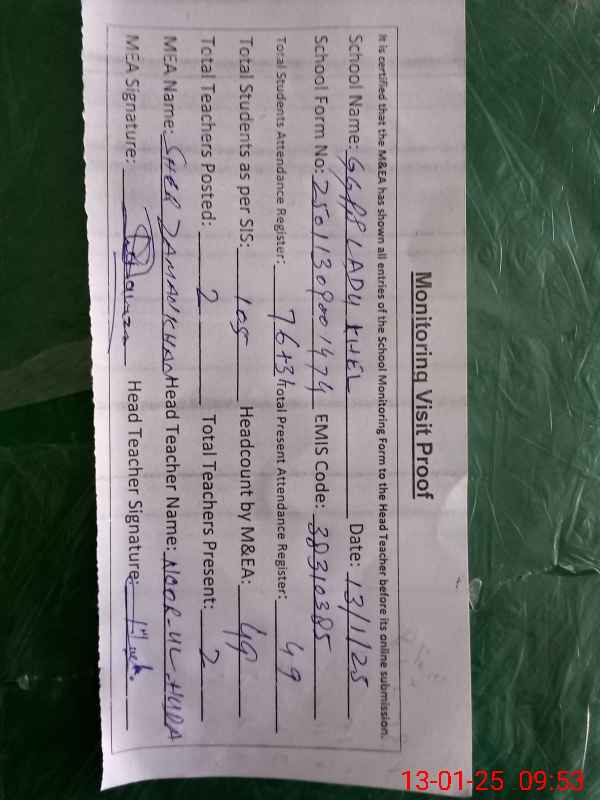 Monitoring Visit Proof
It is certified that the M&EA has shown all entries of the School Monitoring Form to the Head Teacher before its online submission.
School Name: GGPS LADU KHEL Date: 13/1/25
School Form No: 25011309001474 EMIS Code: 38310385
Total Students Attendance Register: 76+31 Total Present Attendance Register: 49
Total Students as per SIS: 108 Headcount by M&EA: 49
Total Teachers Posted: 2 Total Teachers Present: 2
MEA Name: SHER ZAMAN KHAN Head Teacher Name: NOOR-UL-HUDA
MEA Signature: Head Teacher Signature:
13-01-25 09:53